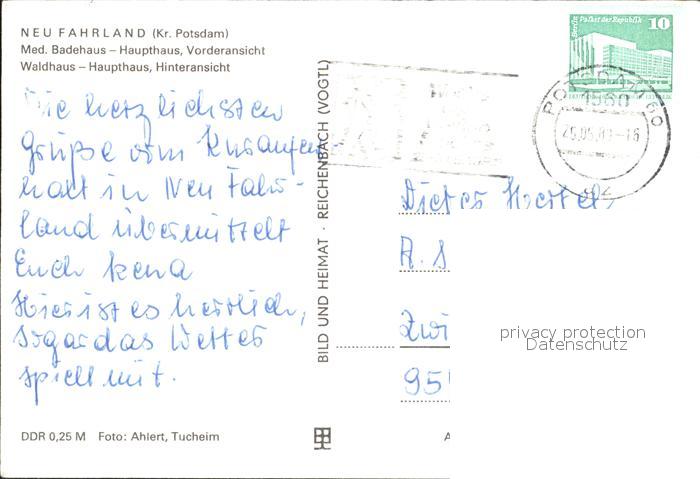 NEU FAHRLAND (Kr. Potsdam)
Med. Badehaus – Haupthaus, Vorderansicht
Waldhaus – Haupthaus, Hinteransicht
Die herzlichsten
Grüße vom Kuraufent-
halt in Neu Fahr-
land übermittelt
Euch
Hier ist es herrlich,
sogar das Wetter
spielt mit.
DDR 0,25 M Foto: Ahlert, Tucheim
BILD UND HEIMAT · REICHENBACH (VOGTL)
Berlin Palast der Republik 10
POTSDAM 60
1560
Dieter
A. S
Zwi
95
privacy protection
Datenschutz
A